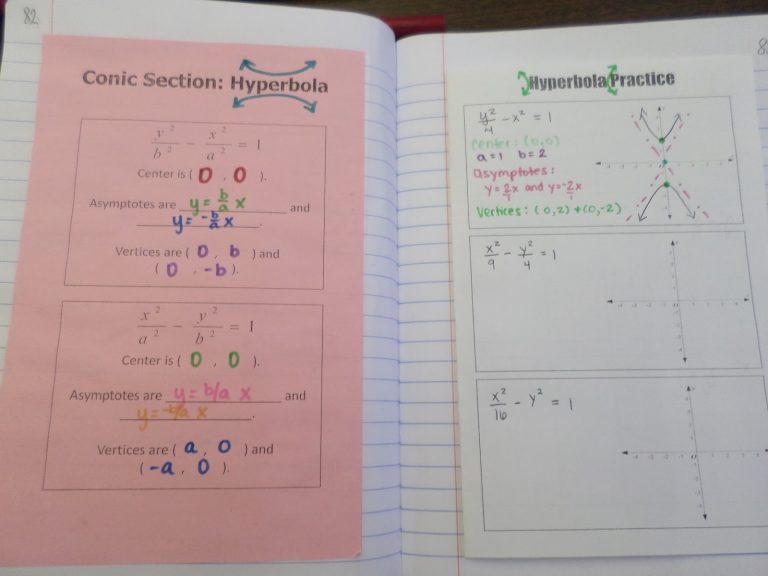 82
Conic Section: Hyperbola
y²/b² - x²/a² = 1
Center is ( 0 , 0 ).
Asymptotes are y = b/a x and
y = -b/a x .
Vertices are ( 0 , b ) and
( 0 , -b ).
x²/a² - y²/b² = 1
Center is ( 0 , 0 ).
Asymptotes are y = b/a x and
y = -b/a x .
Vertices are ( a , 0 ) and
( -a , 0 ).
Hyperbola Practice
y²/4 - x² = 1
Center: (0,0)
a=1 b=2
asymptotes:
y = 2/1 x and y = -2/1 x
Vertices: (0,2) + (0,-2)
x²/9 - y²/4 = 1
x²/16 - y² = 1